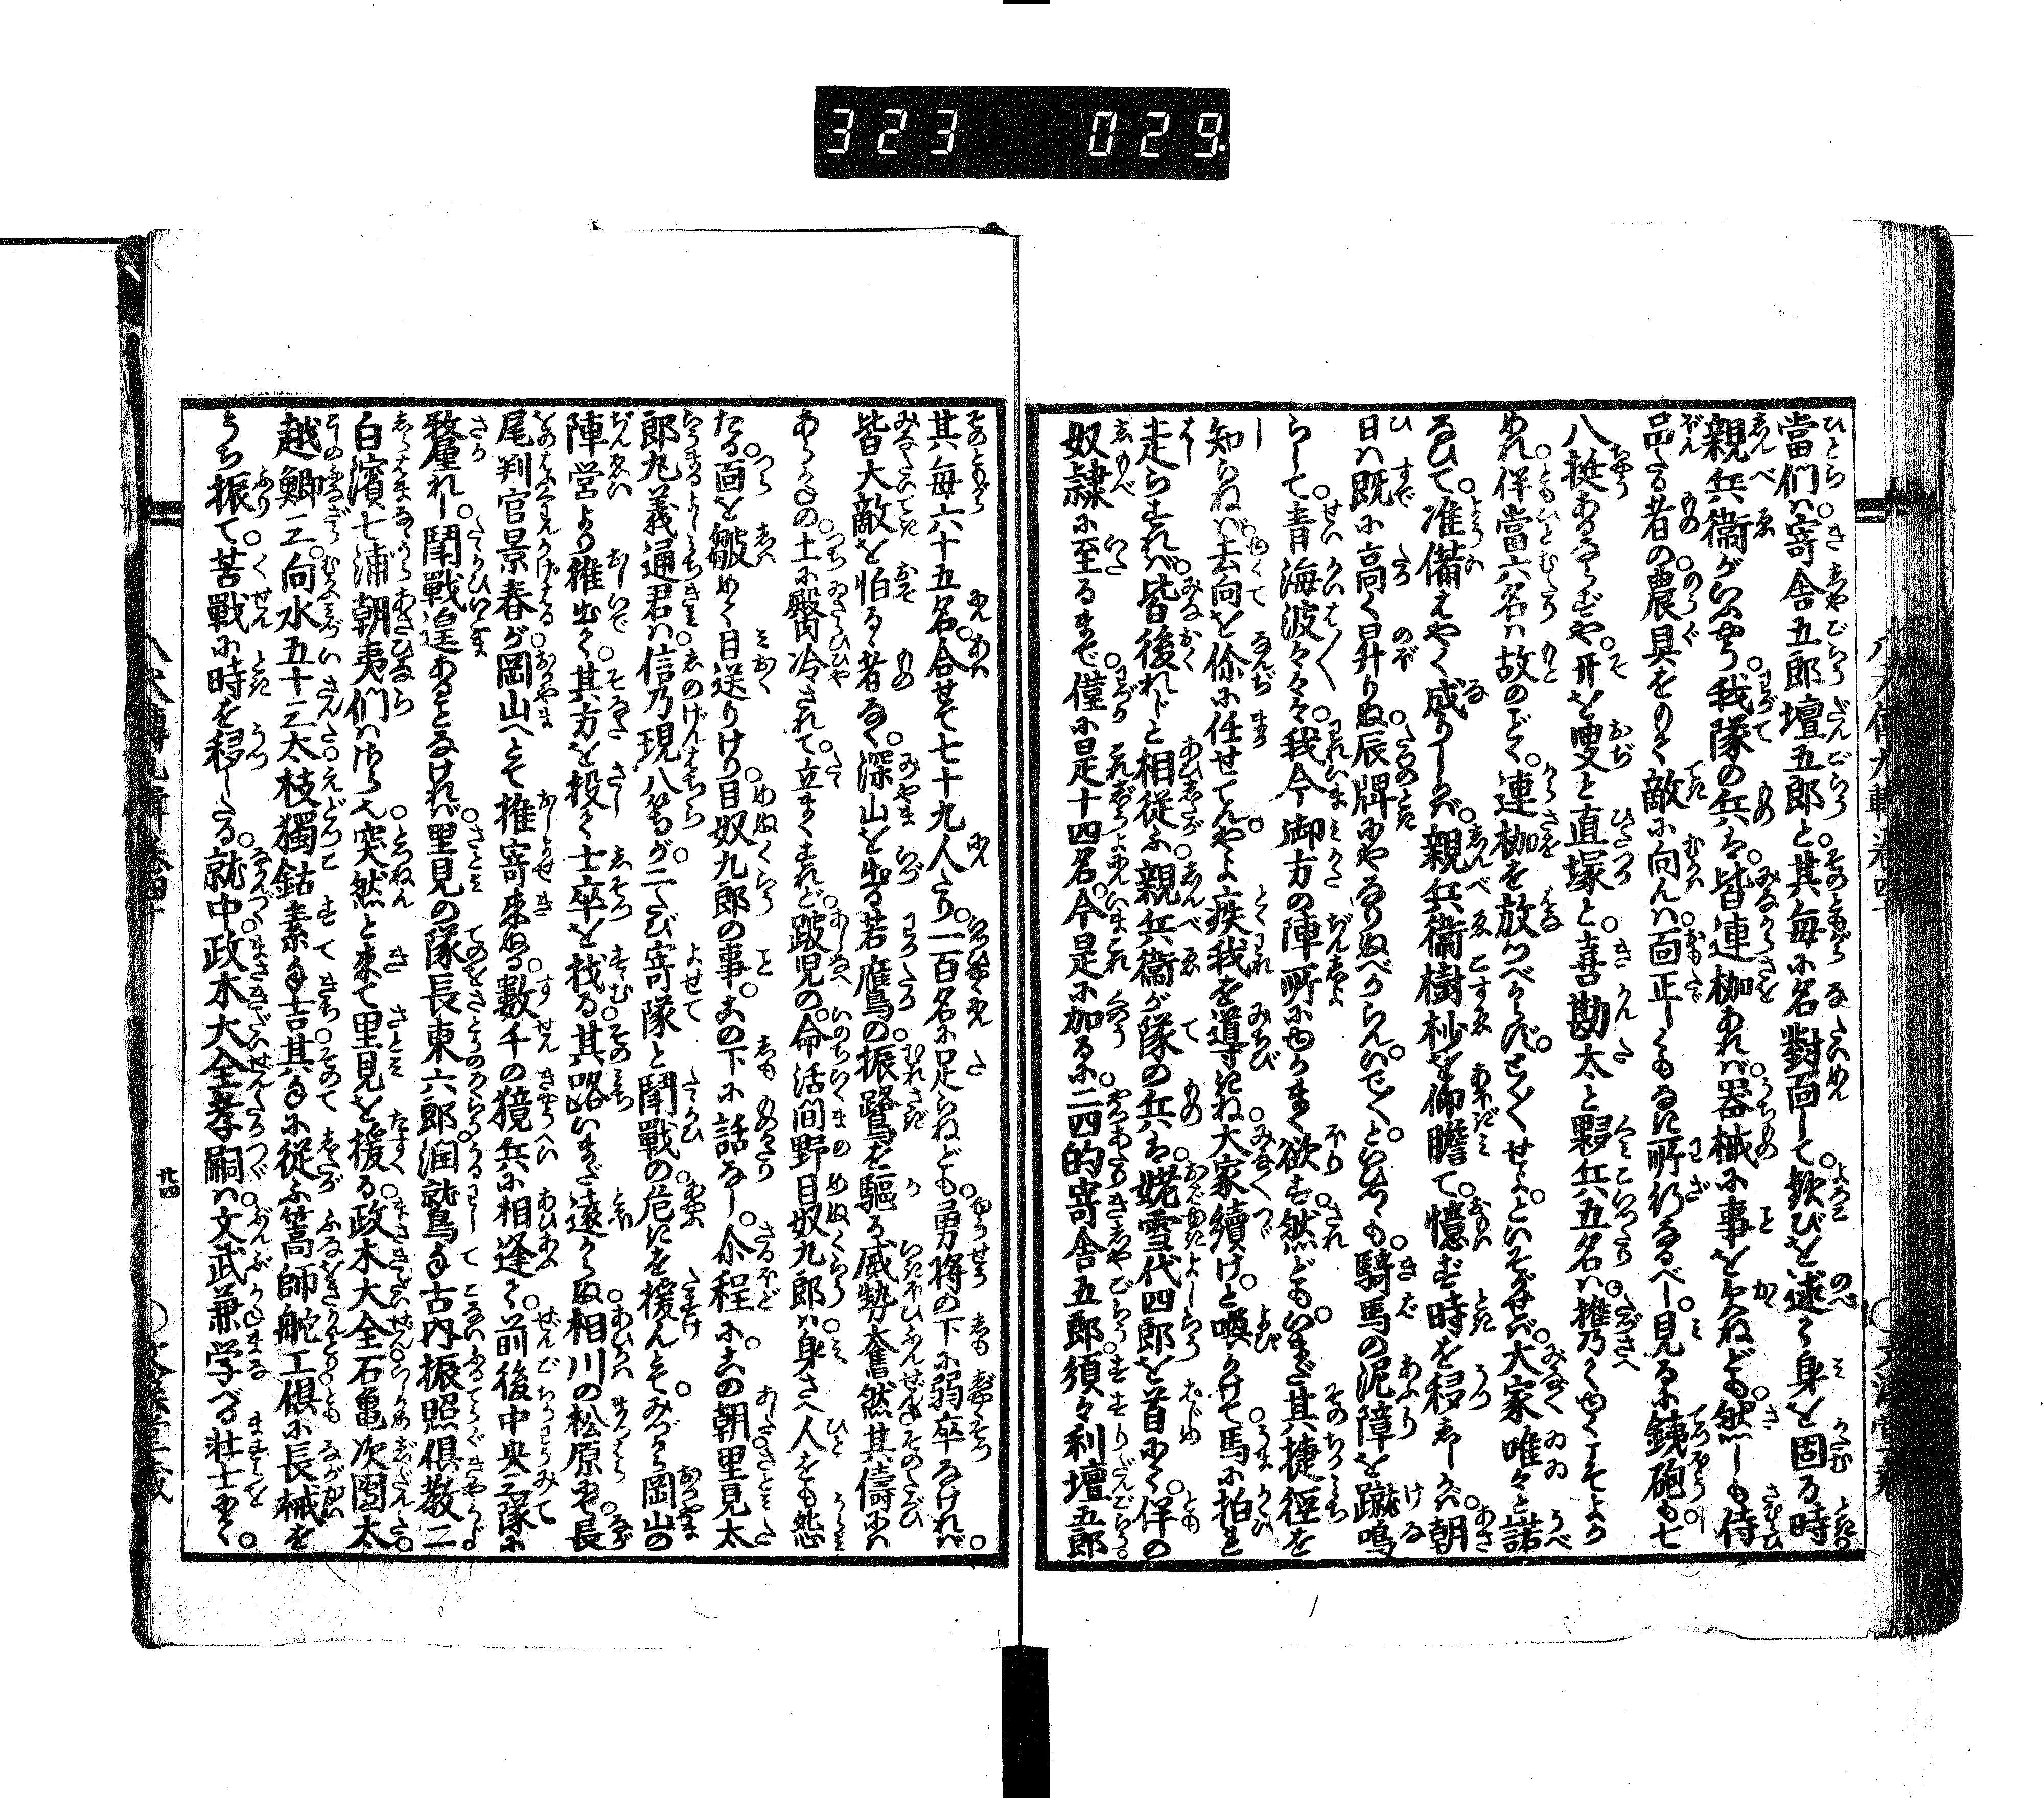 323 029
當們ハ寄舎五郎壇五郎と。其毎に名對面して歓びを述て身を固る時
親兵衛がいふやう我隊の兵は皆連枷あれバ器械に事を欠ねども。然しも侍
品たる者の農具をもて敵に向んハ面正しくもなき所行なるべし。見るに銕砲も七
八挺あるならずや。开を叟と直塚と。喜勘太と夥兵五名ハ。推乃くやく
われ伴當六名ハ故のごとく。連枷を放つべからず。とくせよ。といそがせバ。大家唯々と諾
なひて。准備はやく成りしかバ。親兵衛樹杪を仰瞻て。憶はず時を移しゝかバ。朝
日ハ既に高く昇りぬ。辰牌にやなりぬべからん。いでや。といひつゝも。騎馬の泥障を蹴鳴
らして。青海波々々々。我今御方の陣所にゆかまく欲す。然ども。いまだ其捷徑を
知らねバ。去向を你に任せてんや。よ疾我を導きね。大家續け。と喚かけて馬に拍を
走らすれバ。皆後れじと相従ふ。親兵衛が隊の兵は。姥雪代四郎を首にて。伴の
奴隷に至るまで。僅に是十四名。今是に加るに。二四的寄舎五郎。須々利壇五郎
其毎六十五名。合せて七十九人なり。一百名に足らねども。勇將の下に弱卒なけれバ。
皆大敵を怕るゝ者なく。深山を出る若鷹鳥の振鷺を駆る威勢奮然。其儔にハ
あらぬの。土に臀肉冷されて。立まくすれど跛児の。命活間野目奴九郎ハ。身さへ人をも怨
たる。面を皺めて目送りけり。目奴九郎の事。この下に話なし。尒程に。この朝里見太
郎丸義通君ハ。信乃現八等が二たび寄隊と鬪戰の危きを援んとて。みづから岡山の
陣営より推出て。其方を投て士卒を找る。其路いまだ遠からぬ。相川の松原にて。長
尾判官景春が岡山へとて推寄來ぬる數千の獷兵に相逢て。前後中央三隊に
整れし。鬪戰遑あることなけれバ。里見の隊長東六郎。潤鷲手古内。振照倶教二
白濱七浦朝夷們ハ。突然と来て里見を援る。政木大全。石亀次団太
越鯽三。向水五十三太。枝獨鈷素手吉。其手に従ふ篙師舵工倶に長械を
うち振て。苦戰に時を移したる。就中政木大全孝嗣ハ。文武兼学べる壮士にて。